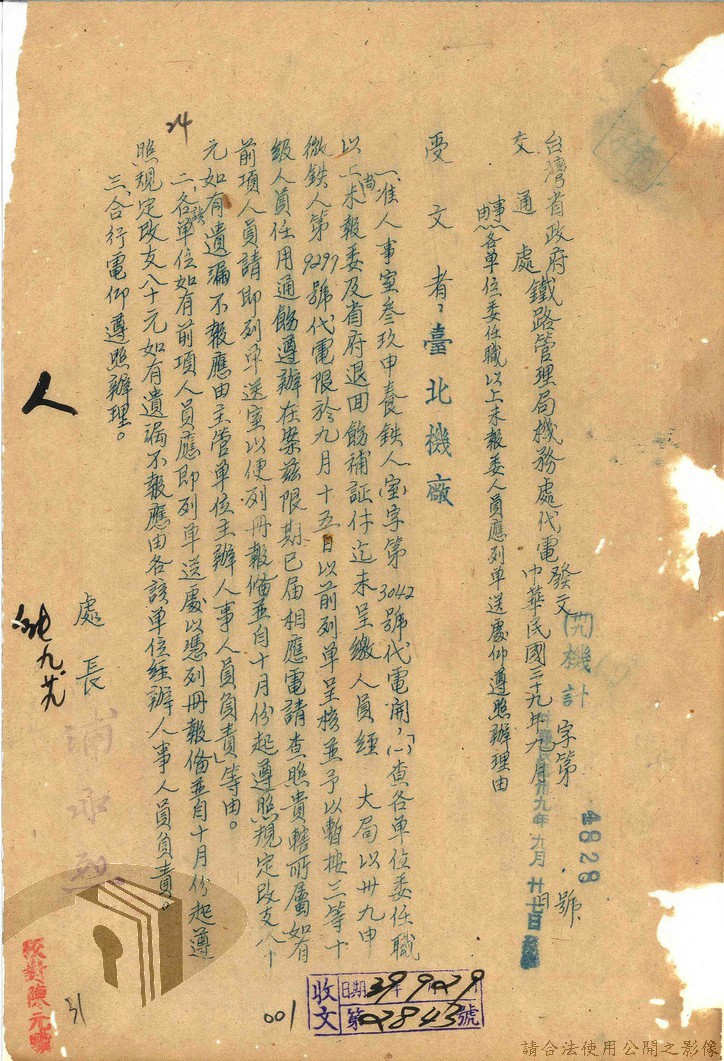 台灣省政府
交通處
鐵路管理局機務處代電
發文(卅九)機計字第4828號
中華民國三十九年九月
卅九年九月廿七日
事由:為各單位委任職以上未報委人員應列单送處仰遵照辦理由
受文者:臺北機廠
一、准人事室叁玖申養鉄人室字第3042號代電開,「(一)查各单位委任職
以上尚未報委及省府退回飭補証件迄未呈繳人員經 大局以卅九申
微鉄人第9297號代電限於九月十五日以前列单呈核並予以暫按三等十
級人員任用通飭遵辦在案茲限期已屆相應電請查照貴轄所屬如有
前項人員請即列单送室以便列冊報俻並自十月份起遵照規定改支八十
元如有遺漏不報應由主管单位主辦人事人員負責」等由。
二、各該单位如有前項人員應即列单送處以憑列冊報俻並自十月份起遵
照規定改支八十元如有遺漏不報應由各該单位經辦人事人員負責。
三、合行電仰遵照辦理。
處長
人
九
24
31
校對陳元
001
收文
日期39年9月29
第02843號
請合法使用公開之影像